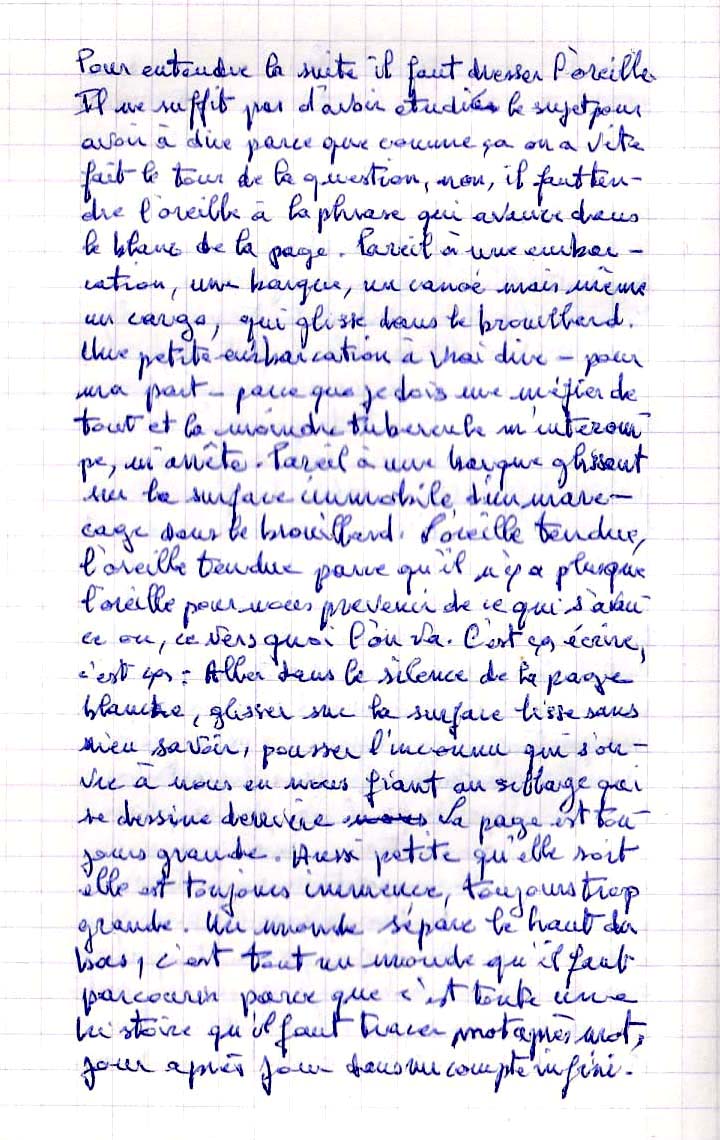 Pour entendre la suite il faut dresser l'oreille
Il ne suffit pas d'avoir étudiés le sujet pour
avoir à dire parce que comme ça on a vite
fait le tour de la question, non, il faut ten-
dre l'oreille à la phrase qui avance dans
le blanc de la page. Pareil à une embar-
cation, une barque, un canoé mais même
un cargo, qui glisse dans le brouillard.
Une petite embarcation à vrai dire – pour
ma part – parce que je dois me méfier de
tout et la moindre tubercule m'interom-
pe, m'arrête. Pareil à une barque glissant
sur la surface immobile d'un maré-
cage dans le brouillard. L'oreille tendue,
l'oreille tendue parce qu'il n'y a plus que
l'oreille pour nous prevenir de ce qui s'avan-
ce ou, ce vers quoi l'on va. C'est ça écrire,
c'est ça : Aller dans le silence de la page
blanche, glisser sur la surface lisse sans
rien savoir, pousser l'inconnu qui s'ou-
vre à nous en nous fiant au sillage qui
se dessine derrière nous La page est tou-
jours grande. Aussi petite qu'elle soit
elle est toujours immence, toujours trop
grande. Un monde sépare le haut du
bas, c'est tout un monde qu'il faut
parcourir parce que c'est toute une
histoire qu'il faut tracer mot après mot,
jour après jour dans un compte infini.